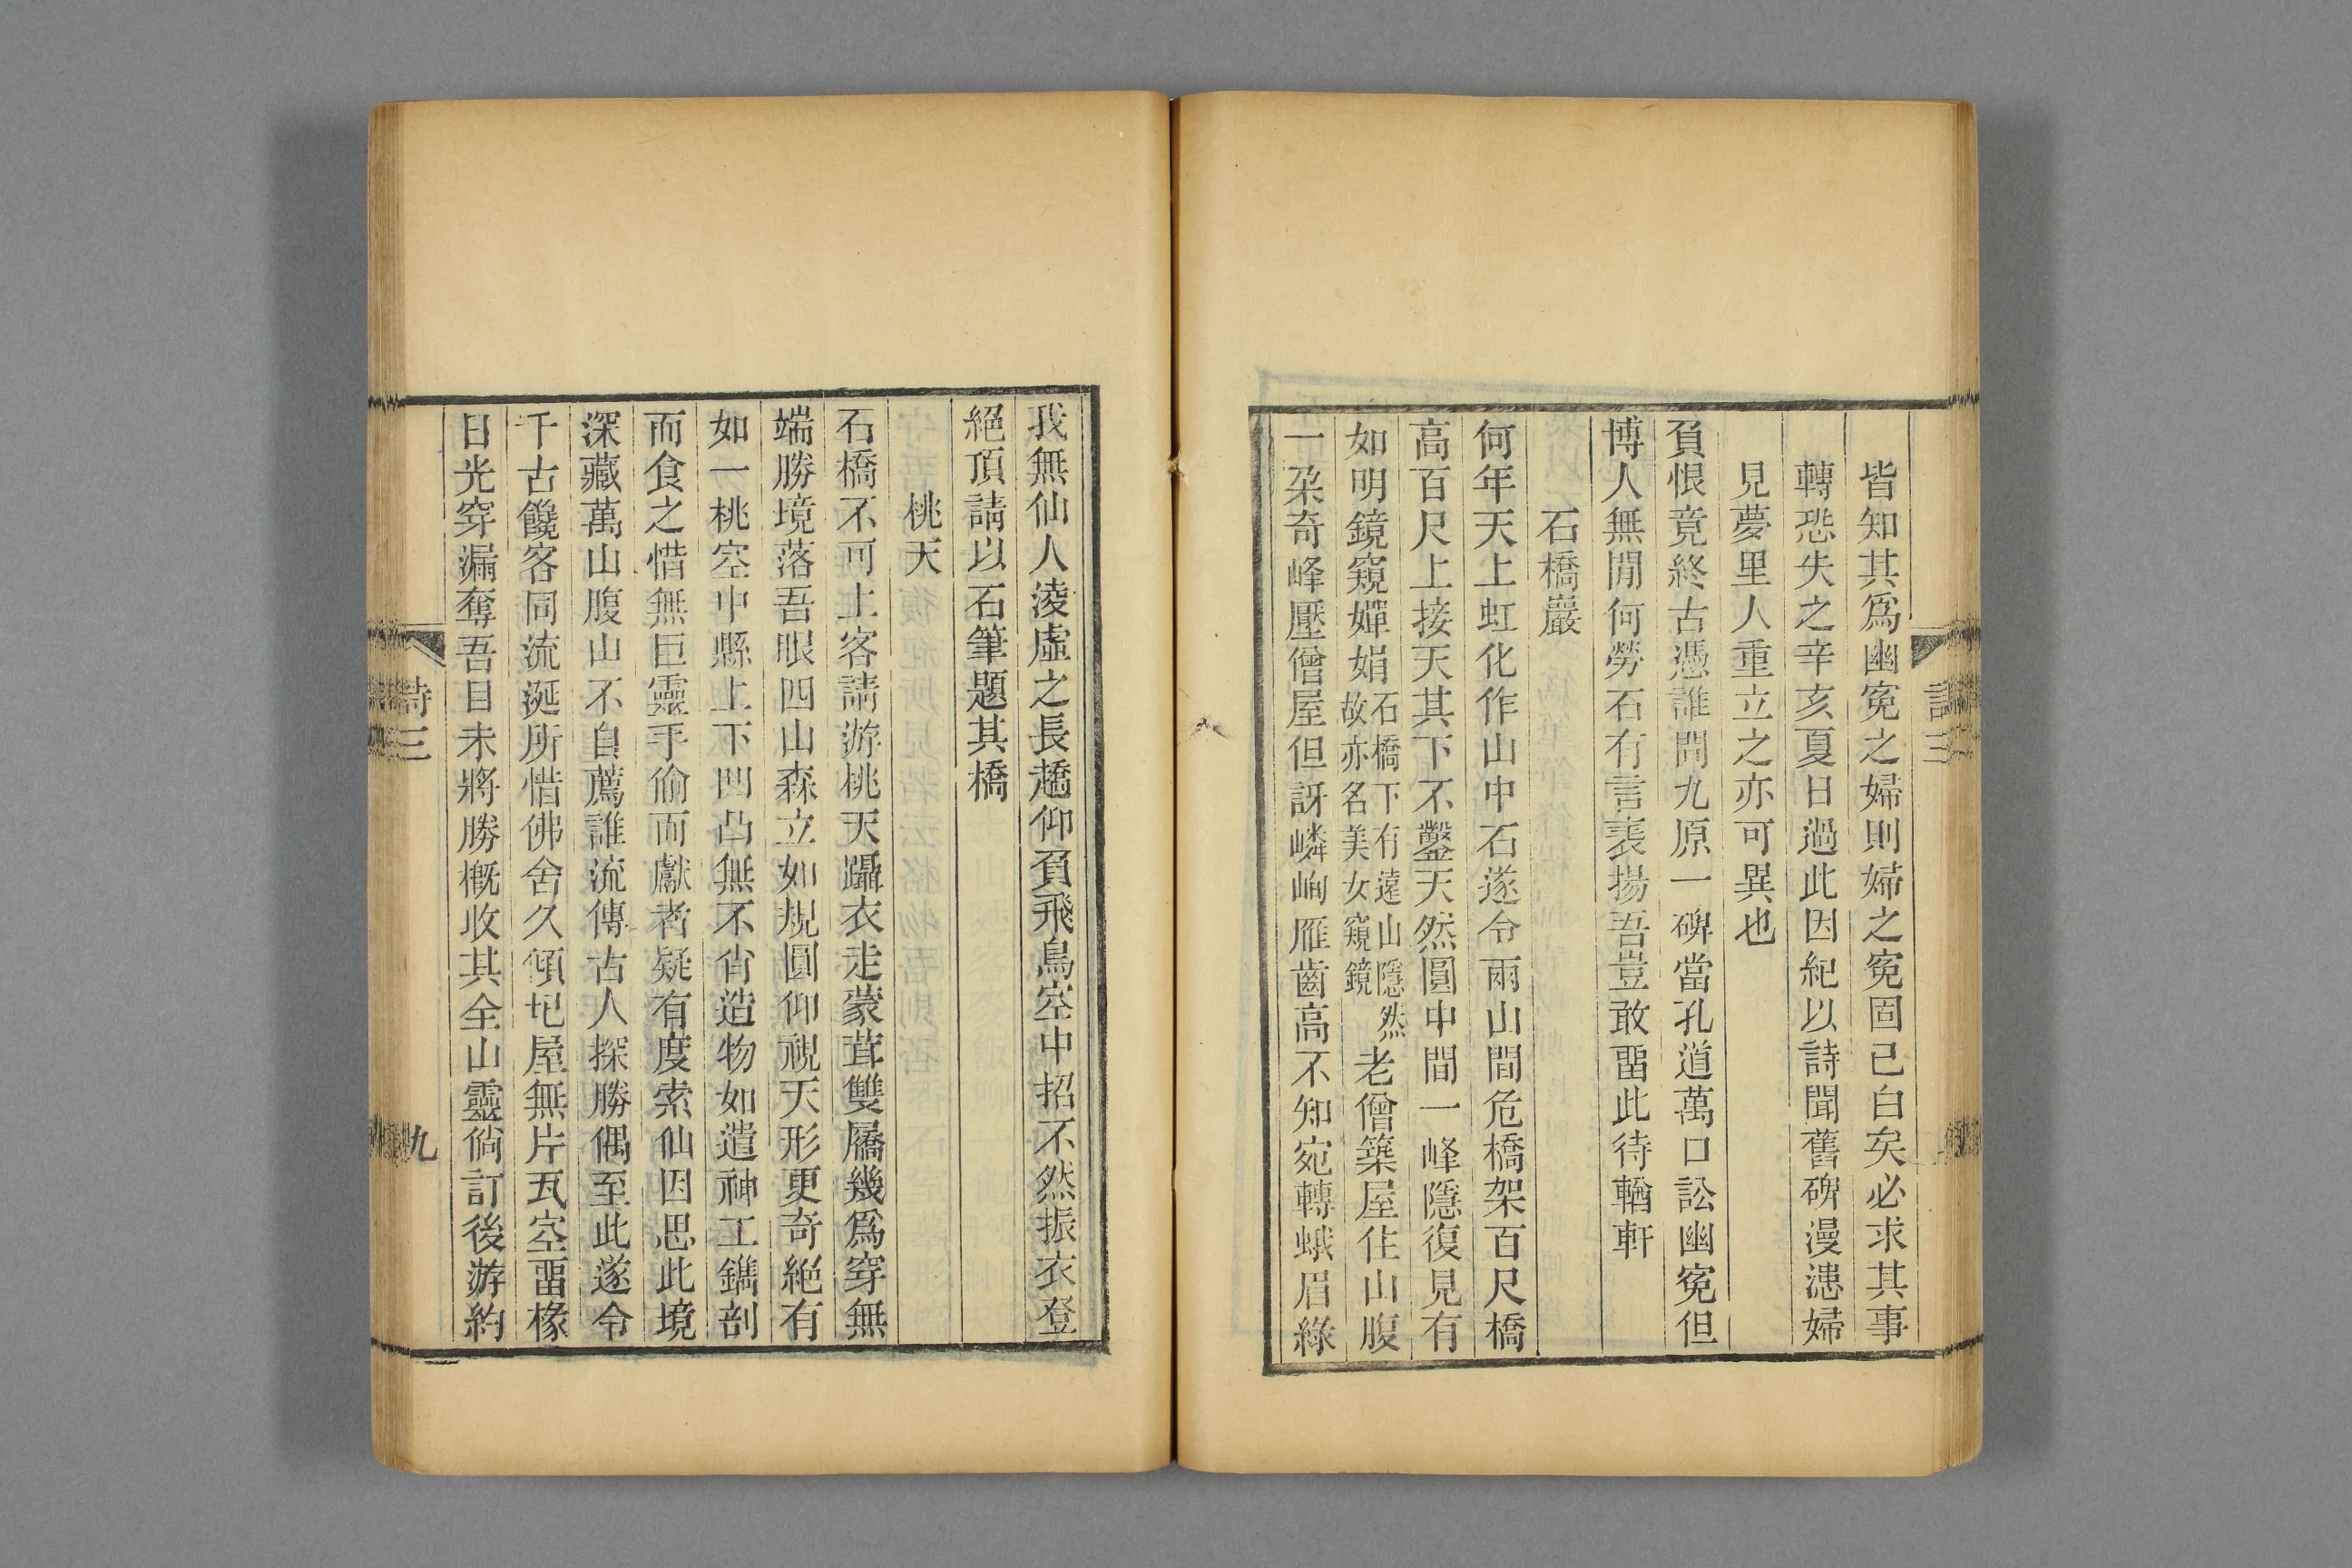 詩三
皆知其爲幽冤之婦則婦之冤固已白矣必求其事
轉恐失之辛亥夏日過此因紀以詩聞舊碑漫漶婦
見夢里人重立之亦可異也
負恨竟終古憑誰問九原一碑當孔道萬口訟幽冤但
博人無閒何勞石有言表揚吾豈敢畱此待輶軒
石橋巖
何年天上虹化作山中石遂令兩山間危橋架百尺橋
高百尺上接天其下不鑿天然圓中間一峰隱復見有
如明鏡窺嬋娟石橋下有遠山隱然故亦名美女窺鏡老僧築屋住山腹
一朶奇峰壓僧屋但訝嶙峋雁齒高不知宛轉蛾眉綠
我無仙人淩虛之長趫仰負飛鳥空中招不然振衣登
絕頂請以石筆題其橋
桃天
石橋不可上客請游桃天躡衣走蒙茸雙屩幾爲穿無
端勝境落吾眼四山森立如規圓仰視天形更奇絕有
如一桃空中縣上下凹凸無不肖造物如遣神工鐫剖
而食之惜無巨靈手偷而獻者疑有度索仙因思此境
深藏萬山腹山不自薦誰流傳古人探勝偶至此遂令
千古饞客同流涎所惜佛舍久傾圮屋無片瓦空畱椽
日光穿漏奪吾目未將勝概收其全山靈倘訂後游約
詩三
九